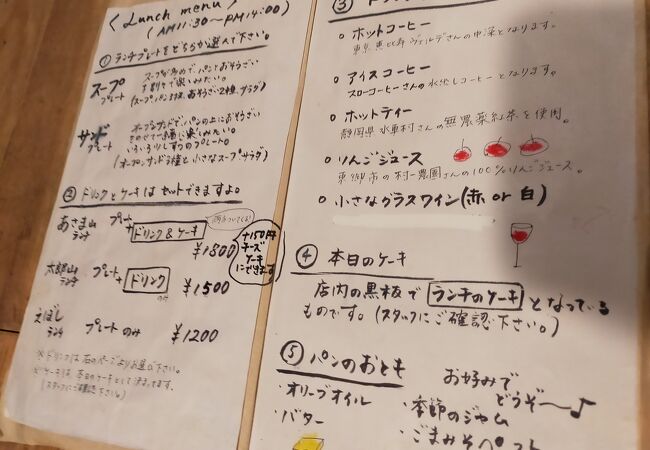 〈Lunch menu〉
(AM11:30～PM14:00)
① ランチプレートをどちらか選んで下さい。
スープ
プレート
スープが多めで、パンとおそうざい
を別々で楽しみたい。
(スープ、パン3種、おそうざい2種、サラダ)
サンド
プレート
オープンサンドで、パンの上におそうざい
をのせて一緒に楽しみたい。
いろいろ少しずつのプレート。
(オープンサンド3種と小さなスープ、サラダ)
② ドリンクとケーキはセットできますよ。
あさま山
ランチ
プレート
+
ドリンク&ケーキ
¥1800
+150円
チーズ
ケーキ
にできます
太郎山
ランチ
プレート
+
ドリンク
のみ
¥1500
えぼし
ランチ
プレートのみ ¥1200
※ドリンクは右のページよりお選び下さい。
(スタッフにご確認下さい。)
③
○ ホットコーヒー
東京恵比寿ヴェルデさんの中深となります。
○ アイスコーヒー
スローコーヒーさんの水出しコーヒーとなります。
○ ホットティー
静岡県水車村さんの無農薬紅茶を使用。
○ りんごジュース
東御市の村一農園さんの100%りんごジュース。
○ 小さなグラスワイン(赤 or 白)
④ 本日のケーキ
店内の黒板で ランチのケーキ となっている
ものです。(スタッフにご確認下さい。)
⑤ パンのおとも
お好みで
どうぞ～♪
・オリーブオイル
・バター
・季節のジャム
・ごまみそペースト